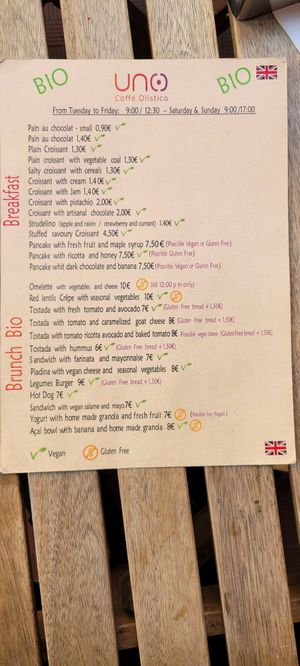 BIO
UNO
BIO
Caffé Olistico
From Tuesday to Friday: 9:00/ 12:30 – Saturday & Sunday 9:00/17:00
Breakfast
Pain au chocolat - small 0,90€
Pain au chocolat 1,40€
Plain Croissant 1,30€
Plain croissant with vegetable coal 1,30€
Salty croissant with cereals 1,30€
Croissant with cream 1,40€
Croissant with Jam 1,40€
Croissant with pistachio 2,00€
Croissant with artisanal chocolate 2,00€
Strudelino (apple and raisin / strawberry and currant) 1,40€
Stuffed savoury Croissant 4,50€
Pancake with fresh fruit and maple syrup 7,50€ (Possible Vegan or Gluten Free)
Pancake with ricotta and honey 7,50€ (Possible Gluten Free)
Pancake whit dark chocolate and banana 7,50€ (Possible Vegan or Gluten Free)
Brunch Bio
Omelette with vegetables and cheese 10€ (till 12:00 p.m only)
Red lentils Crêpe with seasonal vegetables 10€
Tostada with fresh tomato and avocado 7€ (Gluten Free bread +1,50€)
Tostada with tomato and caramelized goat cheese 8€ (Gluten Free bread +1,50€)
Tostada with tomato ricotta avocado and baked tomato 8€ Possible vegan cheese (Gluten Free bread +1,50€)
Tostada with hummus 6€ (Gluten Free bread +1,50€)
Sandwich with farinata and mayonnaise 7€
Piadina with vegan cheese and seasonal vegetables 8€
Legumes Burger 9€ (Gluten Free bread +1,50€)
Hot Dog 7€
Sandwich with vegan salame and mayo 7€
Yogurt with home made granola and fresh fruit 7€ (Possible Soy Yogurt)
Açai bowl with banana and home made granola 8€
Vegan Gluten Free